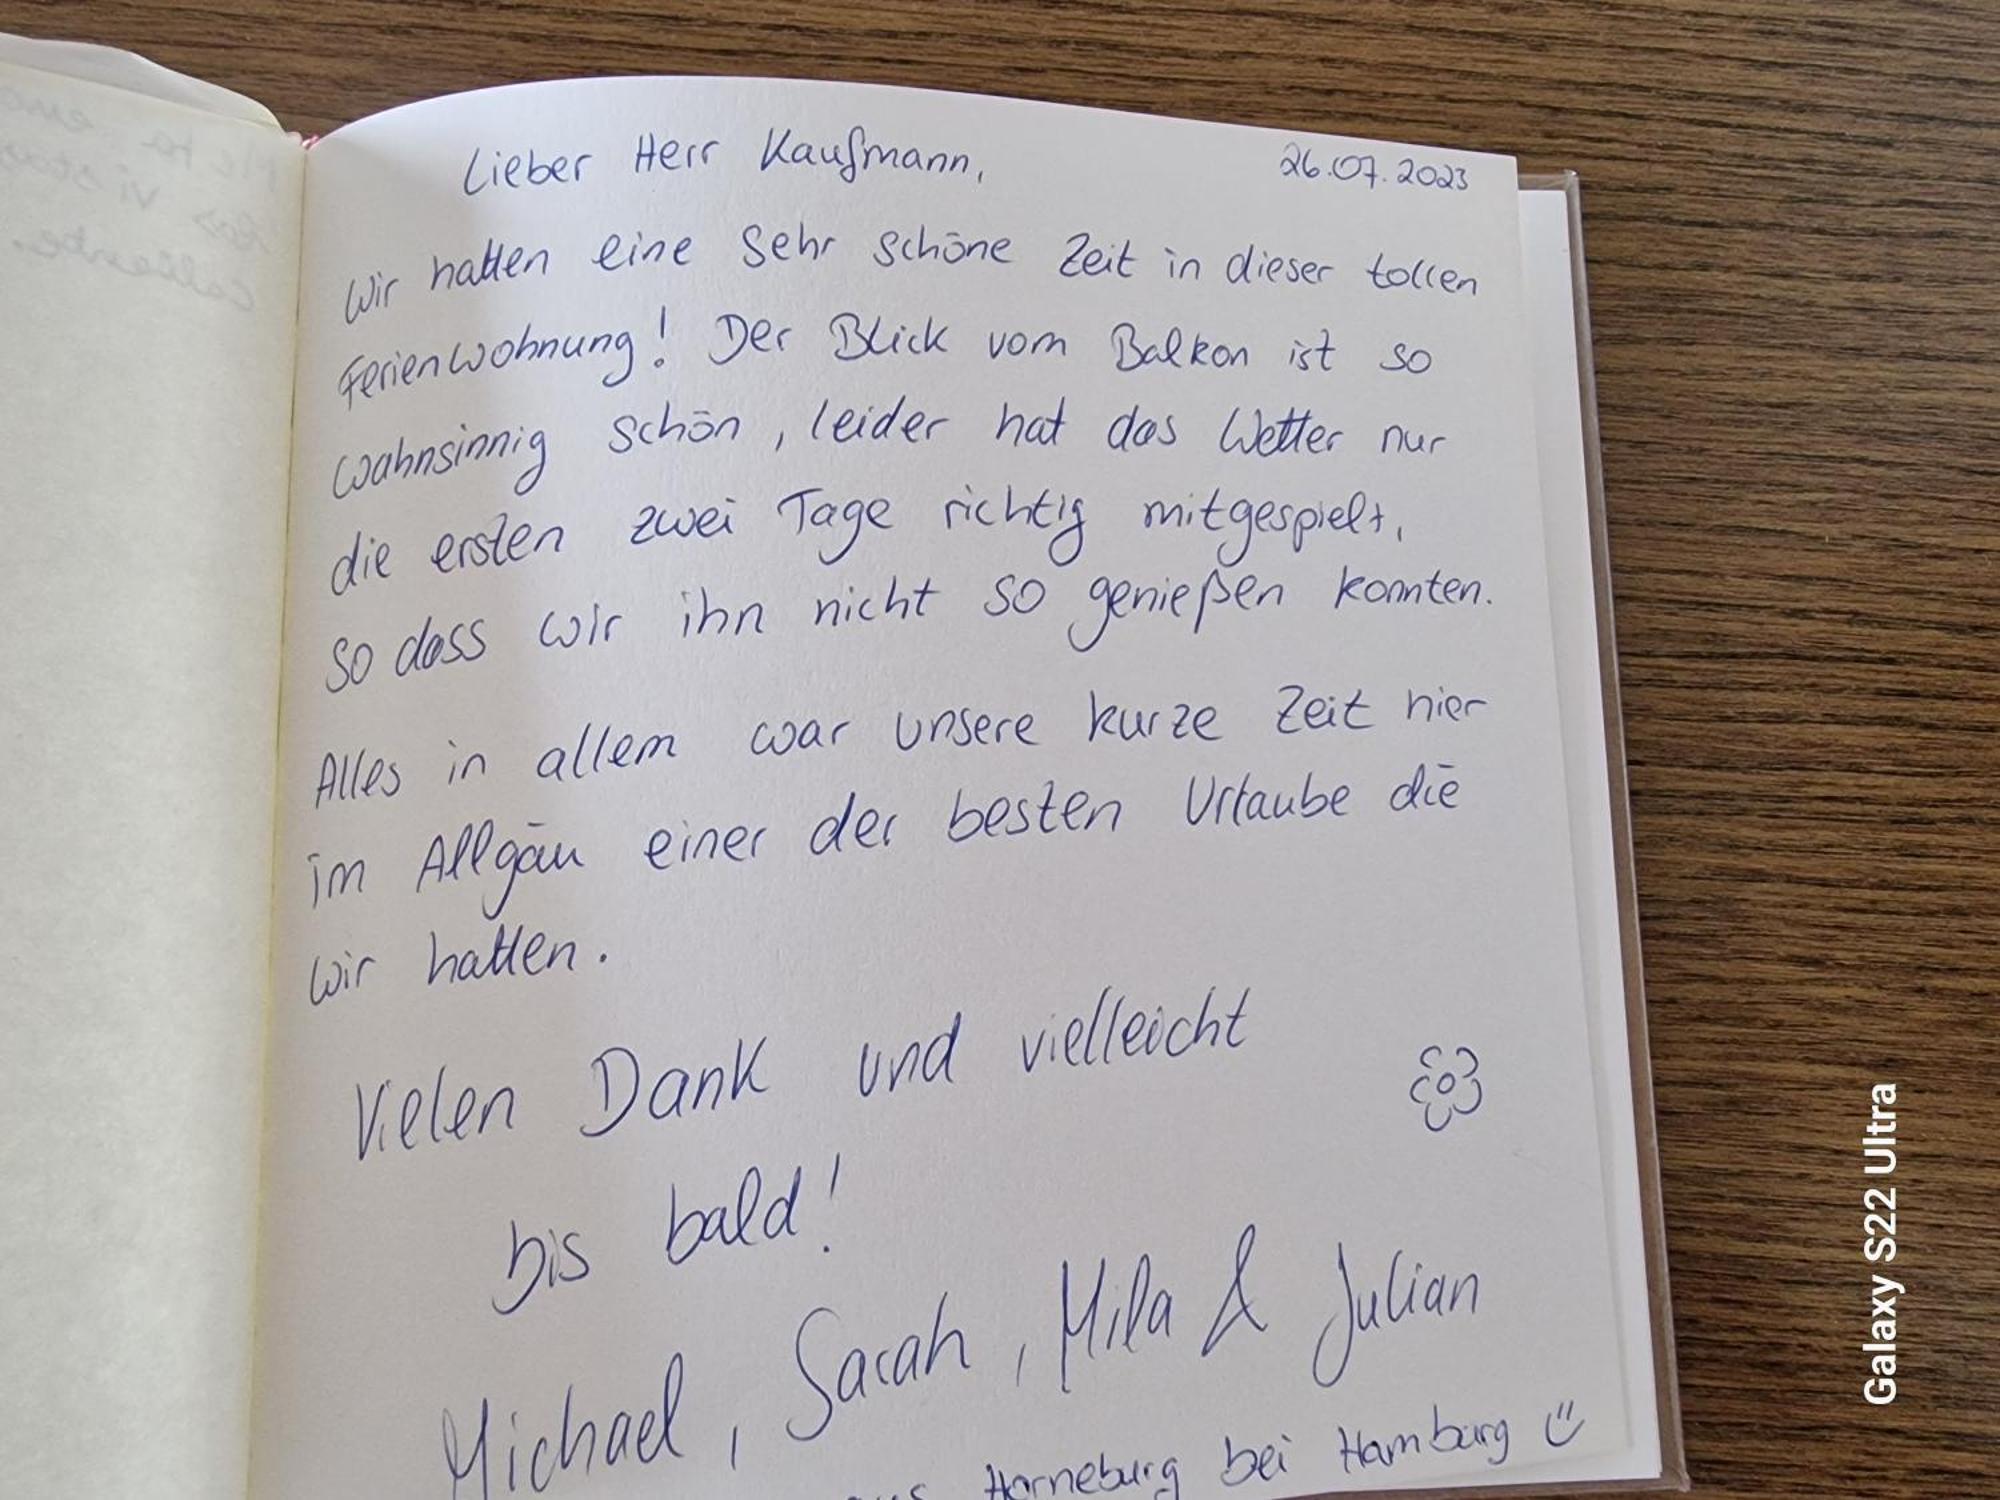 Lieber Herr Kaufmann,
26.07.2023
Wir hatten eine sehr schöne Zeit in dieser tollen
Ferienwohnung! Der Blick vom Balkon ist so
wahnsinnig schön, leider hat das Wetter nur
die ersten zwei Tage richtig mitgespielt,
so dass wir ihn nicht so genießen konnten.
Alles in allem war unsere kurze Zeit hier
im Allgäu einer der besten Urlaube die
wir hatten.
Vielen Dank und vielleicht
bis bald!
Michael, Sarah, Mila & Julian
aus Horneburg bei Hamburg
Galaxy S22 Ultra